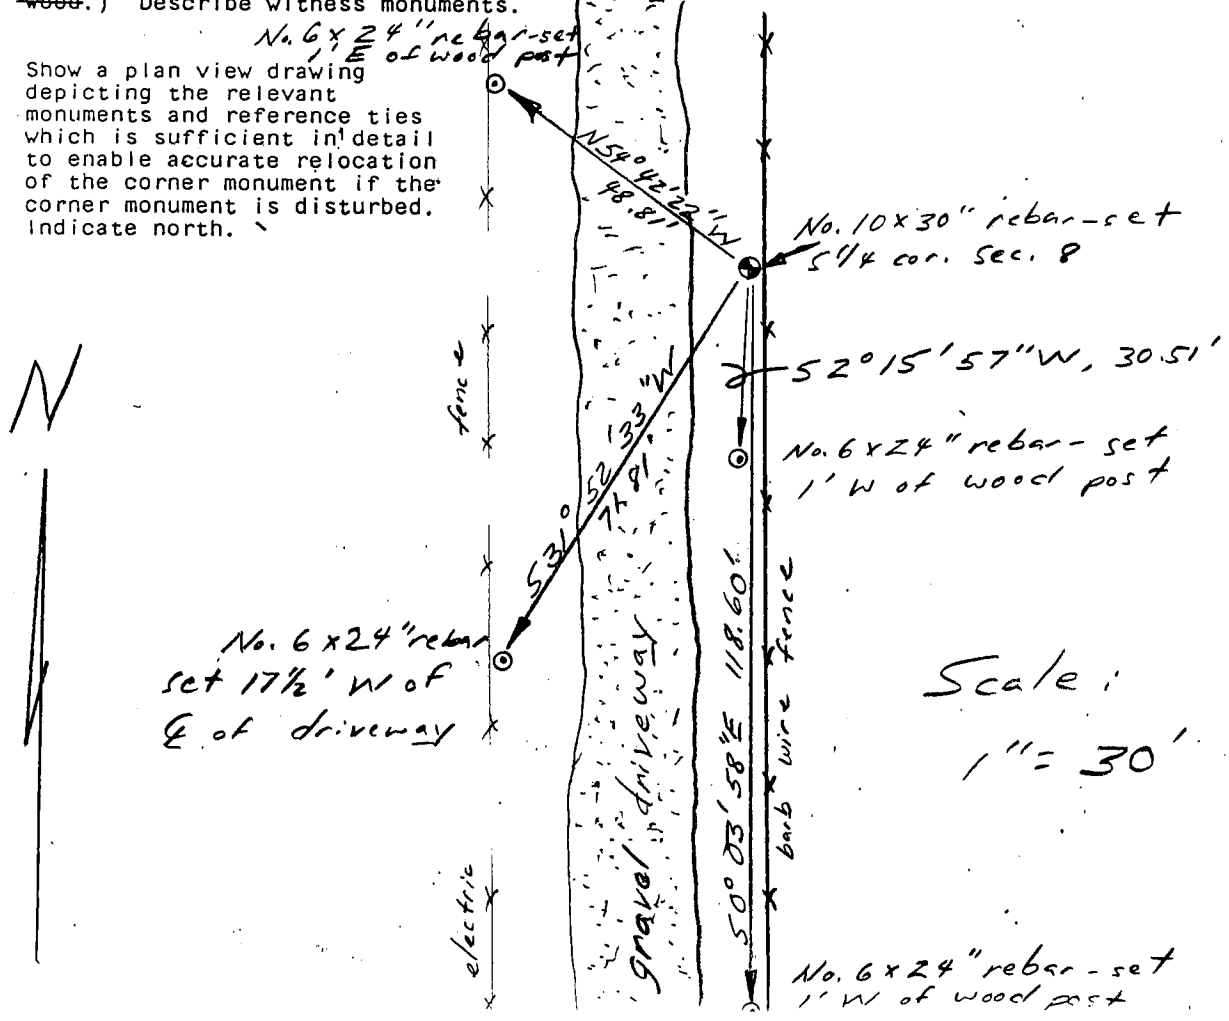 wood.) Describe witness monuments.
No. 6 x 24" rebar-set
1' E of wood post
Show a plan view drawing
depicting the relevant
monuments and reference ties
which is sufficient in detail
to enable accurate relocation
of the corner monument if the
corner monument is disturbed.
Indicate north.
N54°42'22"W
48.81'
No. 10 x 30" rebar-set
S 1/4 cor. Sec. 8
N
fence
S2°15'57"W, 30.51'
No. 6 x 24" rebar-set
1' W of wood post
S31° 52' 33"W
81'
No. 6 x 24" rebar
set 17½' W of
℄ of driveway
gravel driveway
S0°03'58"E 118.60'
barb wire fence
Scale:
1" = 30'
electric
No. 6 x 24" rebar-set
1' W of wood post